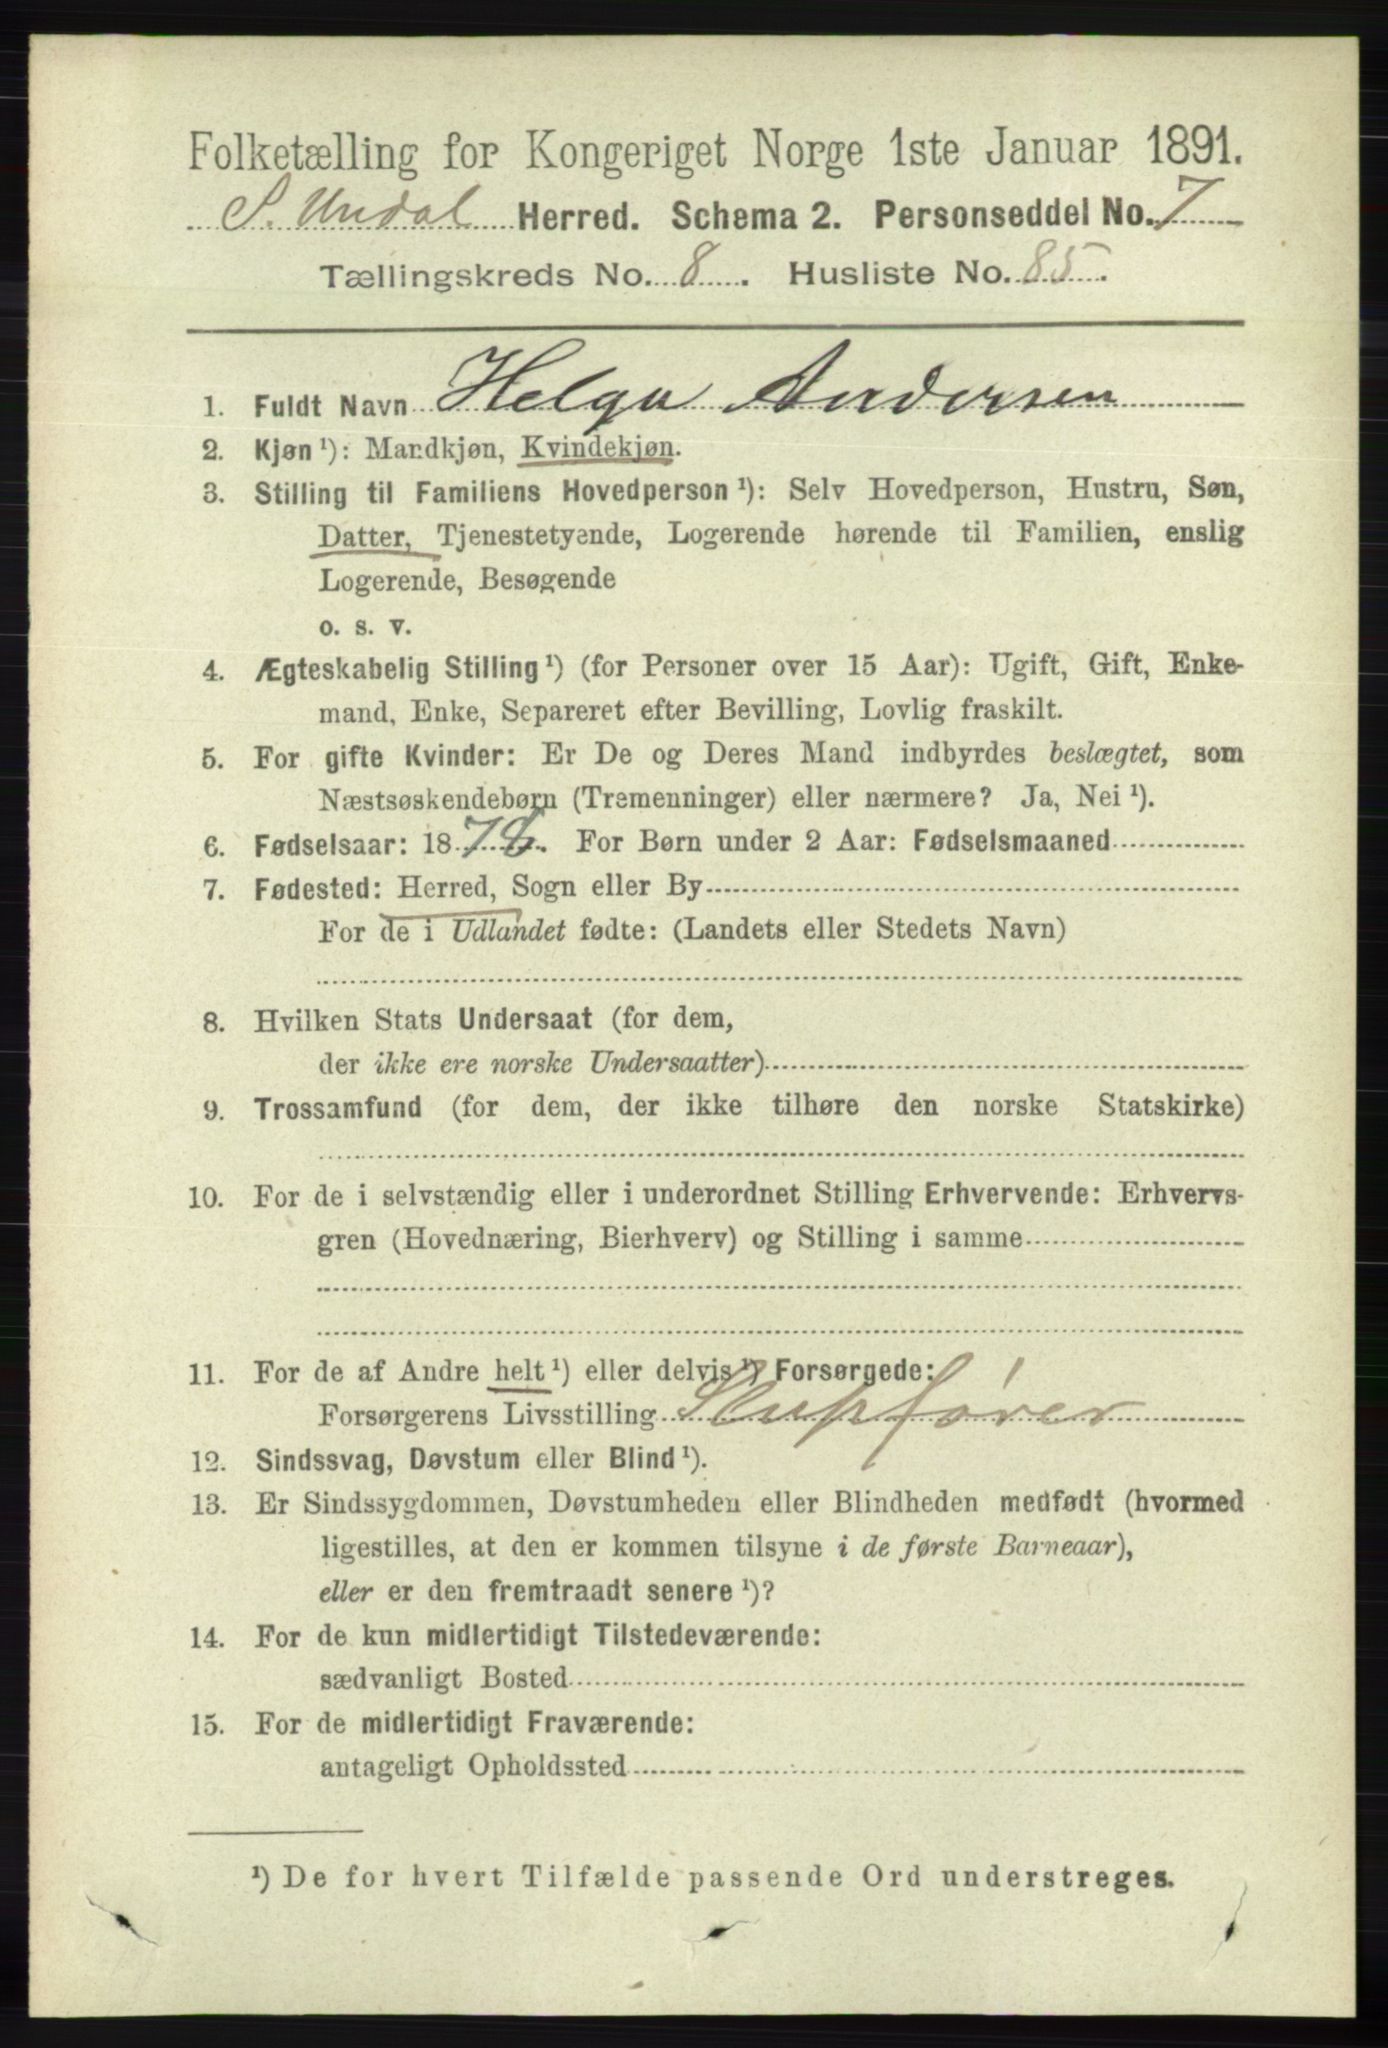 Folketælling for Kongeriget Norge 1ste Januar 1891.
S. Undal Herred. Schema 2. Personseddel No. 7
Tællingskreds No. 8. Husliste No. 85.
1. Fuldt Navn Helga Andersen
2. Kjøn ¹): Mandkjøn, Kvindekjøn.
3. Stilling til Familiens Hovedperson ¹): Selv Hovedperson, Hustru, Søn,
Datter, Tjenestetyende, Logerende hørende til Familien, enslig
Logerende, Besøgende
o. s. v.
4. Ægteskabelig Stilling ¹) (for Personer over 15 Aar): Ugift, Gift, Enke-
mand, Enke, Separeret efter Bevilling, Lovlig fraskilt.
5. For gifte Kvinder: Er De og Deres Mand indbyrdes beslægtet, som
Næstsøskendebørn (Tremenninger) eller nærmere? Ja, Nei ¹).
6. Fødselsaar: 1878. For Børn under 2 Aar: Fødselsmaaned
7. Fødested: Herred, Sogn eller By
For de i Udlandet fødte: (Landets eller Stedets Navn)
8. Hvilken Stats Undersaat (for dem,
der ikke ere norske Undersaatter)
9. Trossamfund (for dem, der ikke tilhøre den norske Statskirke)
10. For de i selvstændig eller i underordnet Stilling Erhvervende: Erhvervs-
gren (Hovednæring, Bierhverv) og Stilling i samme
11. For de af Andre helt ¹) eller delvis ¹) Forsørgede:
Forsørgerens Livsstilling Skipsfører
12. Sindssvag, Døvstum eller Blind ¹).
13. Er Sindssygdommen, Døvstumheden eller Blindheden medfødt (hvormed
ligestilles, at den er kommen tilsyne i de første Barneaar),
eller er den fremtraadt senere ¹)?
14. For de kun midlertidigt Tilstedeværende:
sædvanligt Bosted
15. For de midlertidigt Fraværende:
antageligt Opholdssted
¹) De for hvert Tilfælde passende Ord understreges.